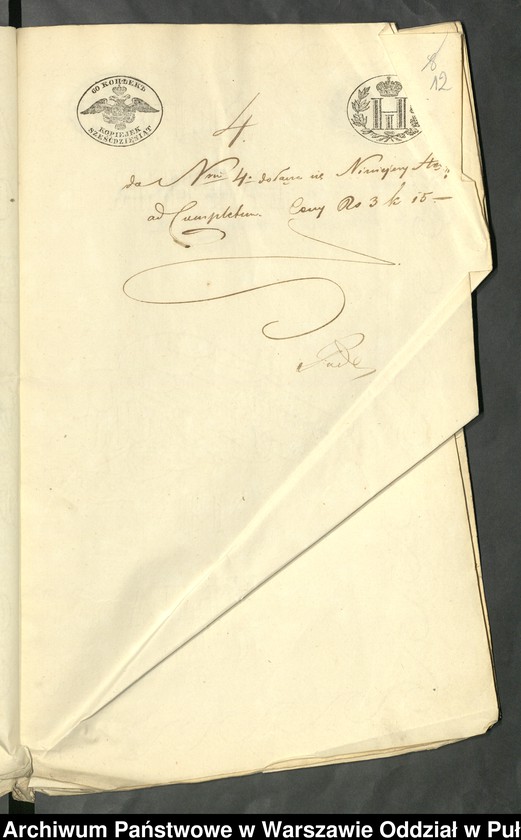 8
12
60 КОПѢЕКЪ
KOPIEJEK
SZEŚĆDZIESIĄT
4.
do Nru 4. dołącza się Niniejszy
ad Completum. Ceny Rs 3 k 15 —
Archiwum Państwowe w Warszawie Oddział w Puł